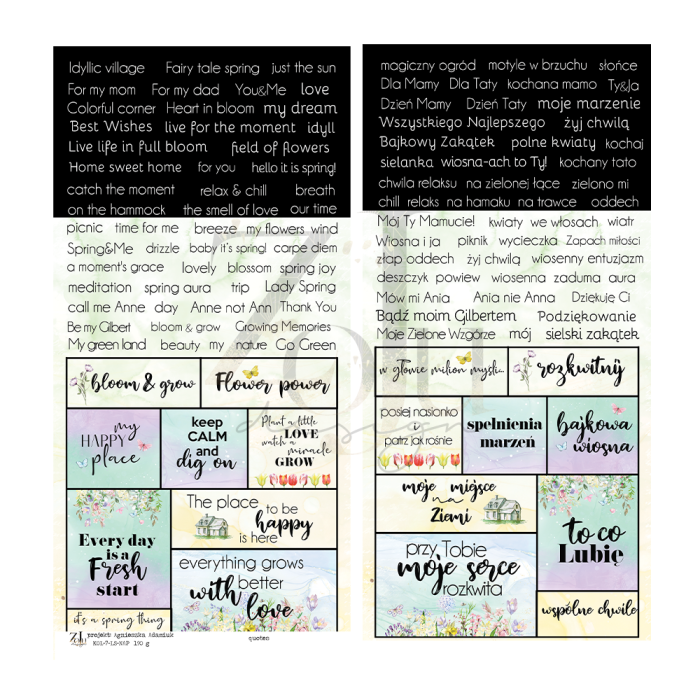 Idyllic village Fairy tale spring just the sun
For my mom For my dad You&Me love
Colorful corner Heart in bloom my dream
Best Wishes live for the moment idyll
Live life in full bloom field of flowers
Home sweet home for you hello it is spring!
catch the moment relax & chill breath
on the hammock the smell of love our time
picnic time for me breeze my flowers wind
Spring&Me drizzle baby it's spring! carpe diem
a moment's grace lovely blossom spring joy
meditation spring aura trip Lady Spring
call me Anne day Anne not Ann Thank You
Be my Gilbert bloom & grow Growing Memories
My green land beauty my nature Go Green
bloom & grow
Flower power
my
HAPPY
place
keep
CALM
and
dig on
Plant a little
LOVE
watch a
miracle
GROW
Every day
is a
Fresh
start
The place
to be
happy
is here
everything grows
better
with
love
it's a spring thing
projekt: Agnieszka Adamiuk
quotes
magiczny ogród motyle w brzuchu słońce
Dla Mamy Dla Taty kochana mamo Ty&Ja
Dzień Mamy Dzień Taty moje marzenie
Wszystkiego Najlepszego żyj chwilą
Bajkowy Zakątek polne kwiaty kochaj
sielanka wiosna-ach to Ty! kochany tato
chwila relaksu na zielonej łące zielono mi
chill relaks na hamaku na trawce oddech
Mój Ty Mamuciel kwiaty we włosach wiatr
Wiosna i ja piknik wycieczka Zapach miłości
złap oddech żyj chwilą wiosenny entuzjazm
deszczyk powiew wiosenna zaduma aura
Mów mi Ania Ania nie Anna Dziękuję Ci
Bądź moim Gilbertem Podziękowanie
Moje Zielone Wzgórze mój sielski zakątek
w głowie milion myśli...
rozkwitnij
posiej nasionko
i
patrz jak rośnie
spełnienia
marzeń
bajkowa
wiosna
moje miejsce
na
Ziemi
to co
Lubię
przy Tobie
moje serce
rozkwita
wspólne chwile